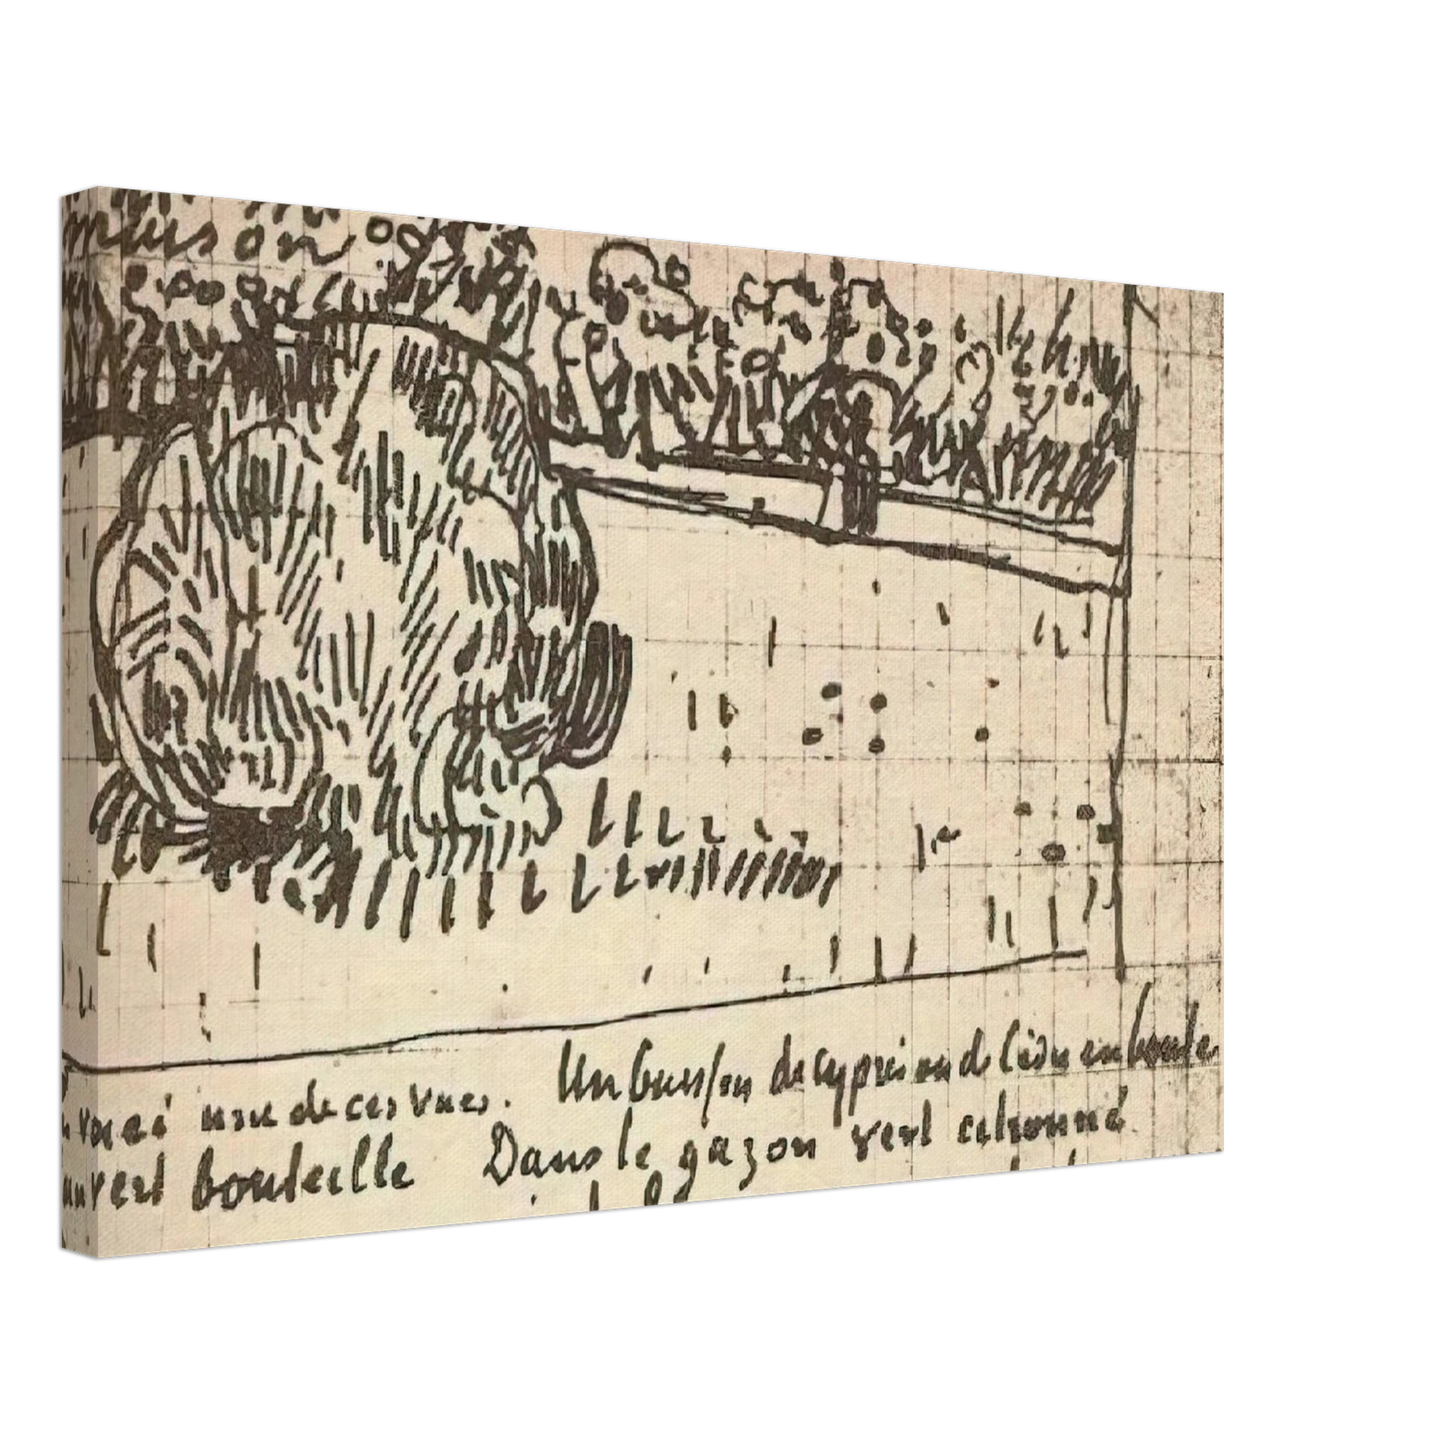 maison
voici une de ces vues. Un buisson de cyprès ou de cèdre en boule
en vert bouteille Dans le gazon vert citronné